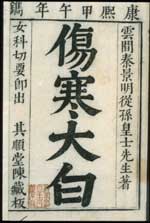 康熙甲午年鐫
雲間秦景明從孫皇士先生著
傷寒大白
女科切要即出 其順堂陳藏板